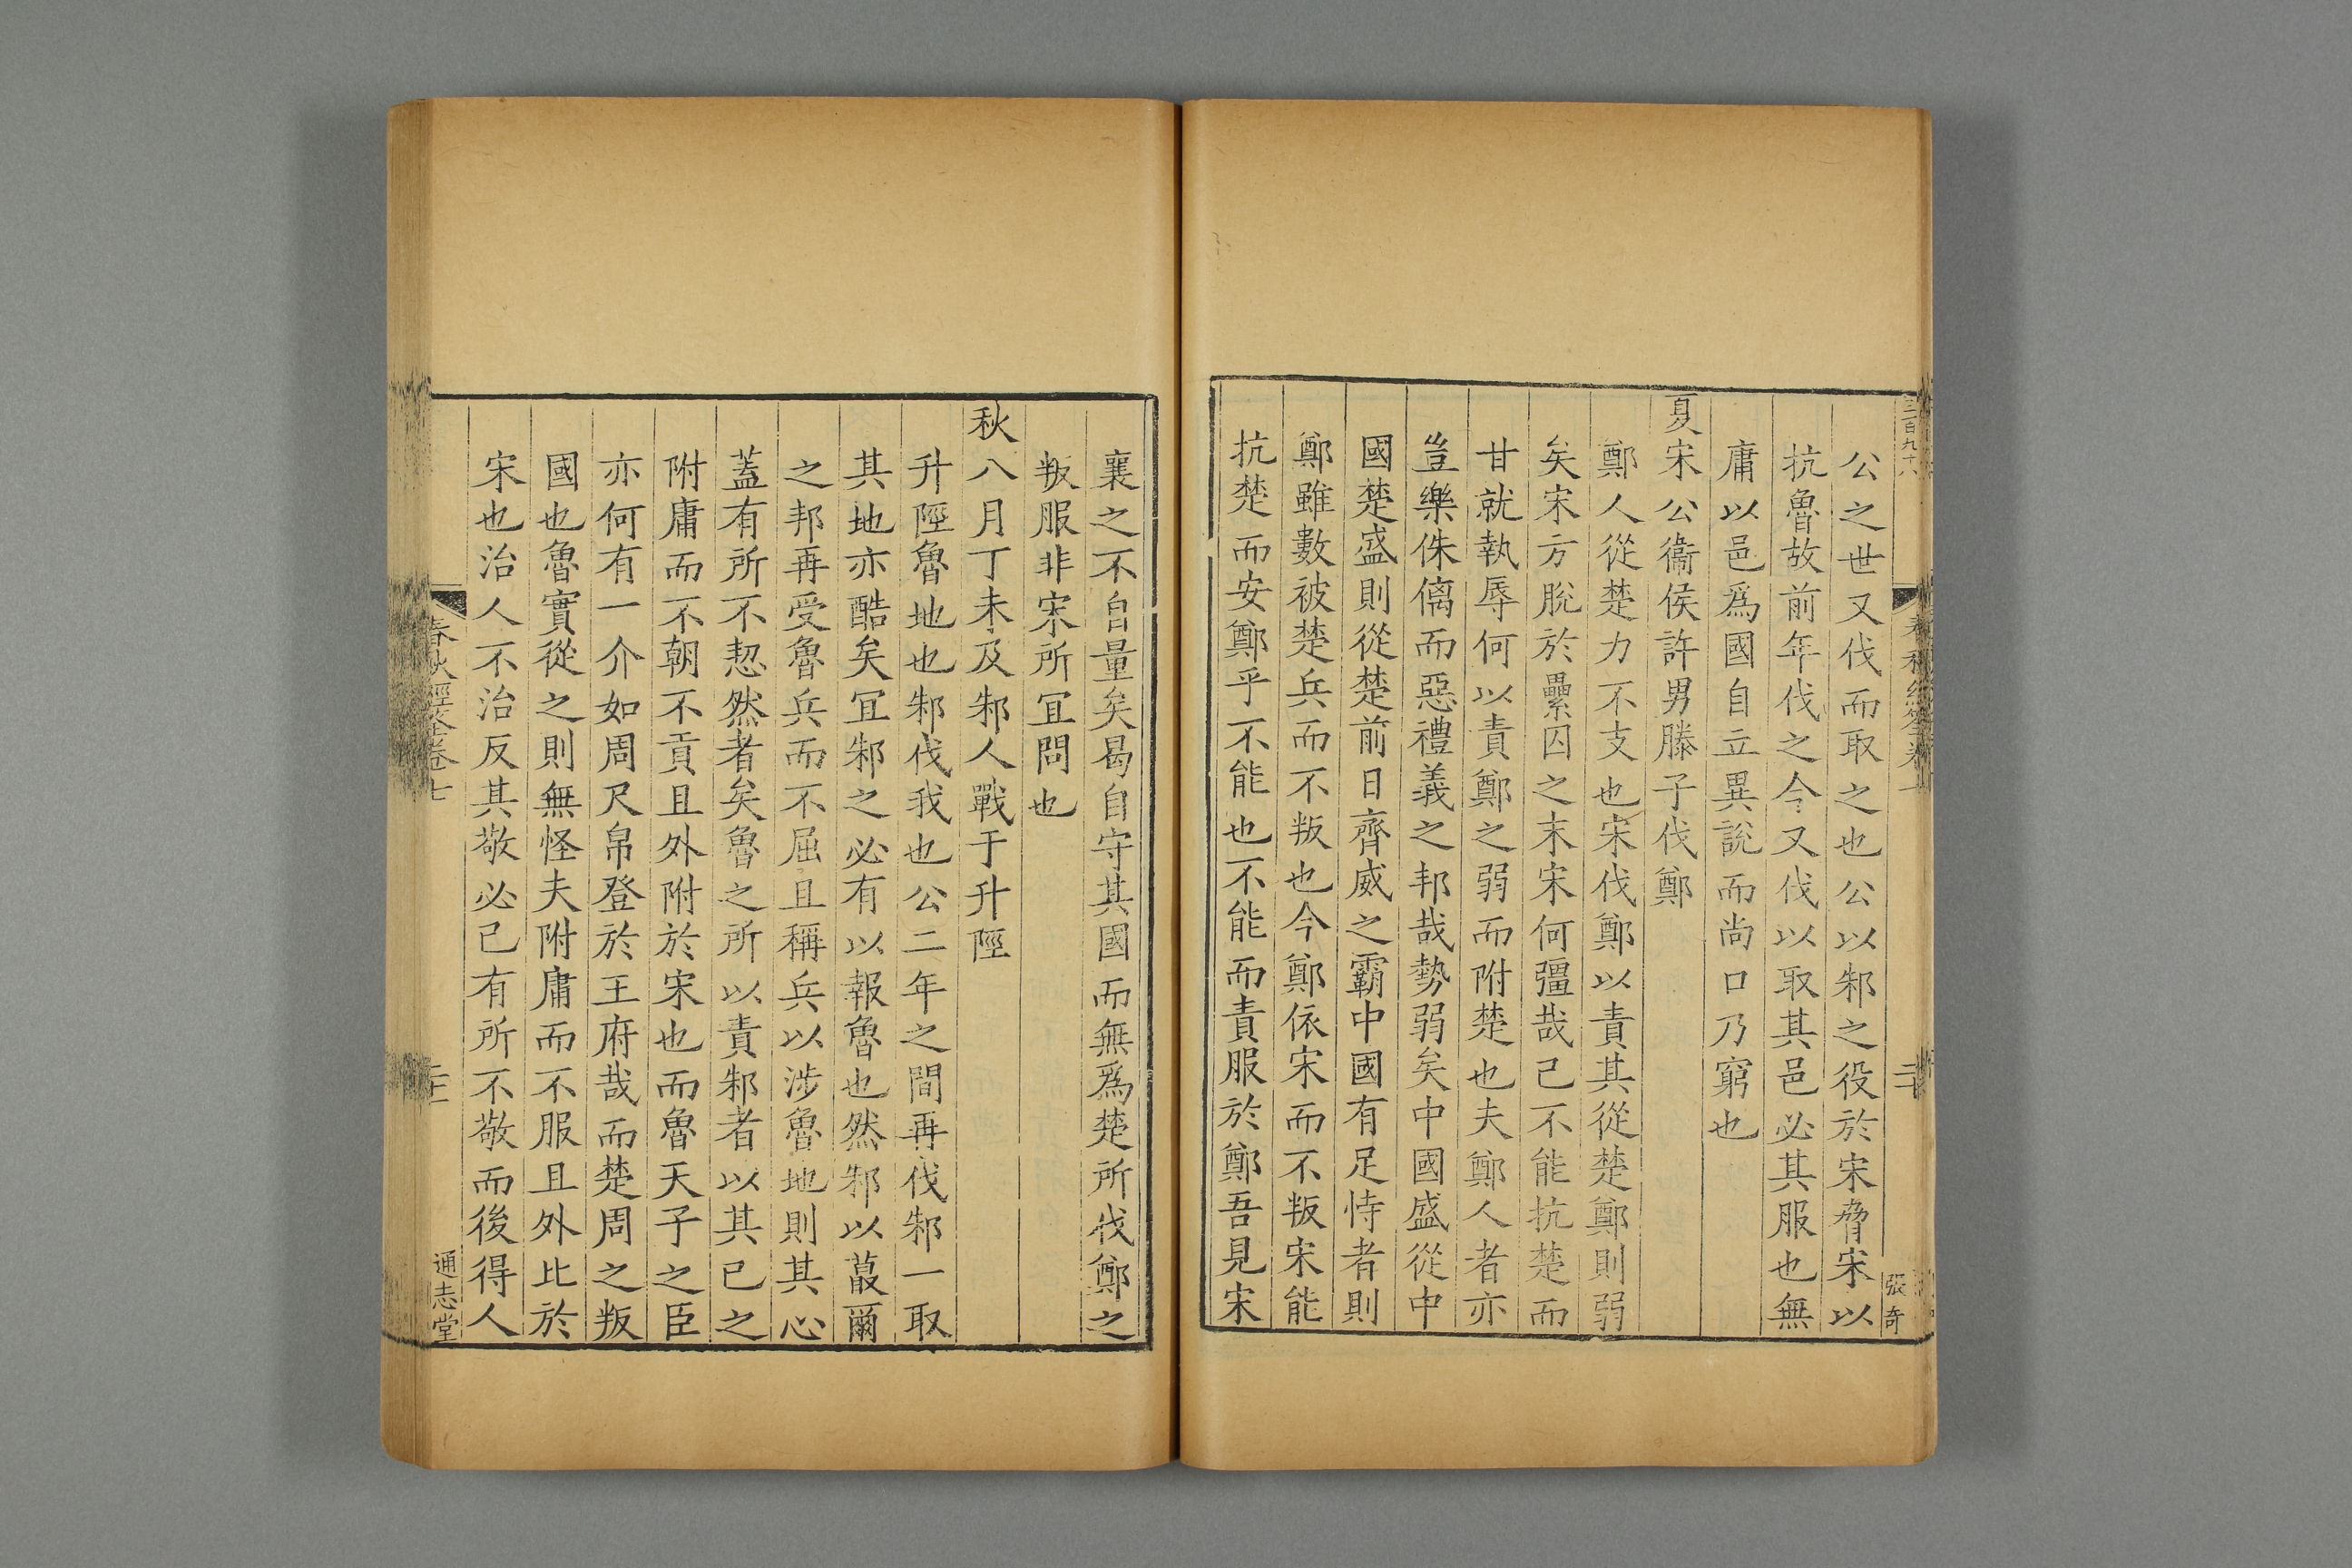 三百九十八
春秋經筌卷七
二十
張奇
公之世又伐而取之也公以邾之役於宋脅宋以
抗魯故前年伐之今又伐以取其邑必其服也無
庸以邑爲國自立異說而尚口乃窮也
夏宋公衞侯許男滕子伐鄭
鄭人從楚力不支也宋伐鄭以責其從楚鄭則弱
矣宋方脫於纍囚之末宋何彊哉己不能抗楚而
甘就執辱何以責鄭之弱而附楚也夫鄭人者亦
豈樂侏儷而惡禮義之邦哉勢弱矣中國盛從中
國楚盛則從楚前日齊威之霸中國有足恃者則
鄭雖數被楚兵而不叛也今鄭依宋而不叛宋能
抗楚而安鄭乎不能也不能而責服於鄭吾見宋
襄之不自量矣曷自守其國而無爲楚所伐鄭之
叛服非宋所冝問也
秋八月丁未及邾人戰于升陘
升陘魯地也邾伐我也公二年之間再伐邾一取
其地亦酷矣冝邾之必有以報魯也然邾以蕞爾
之邦再受魯兵而不屈且稱兵以涉魯地則其心
蓋有所不恝然者矣魯之所以責邾者以其已之
附庸而不朝不貢且外附於宋也而魯天子之臣
亦何有一介如周尺帛登於王府哉而楚周之叛
國也魯實從之則無怪夫附庸而不服且外比於
宋也治人不治反其敬必己有所不敬而後得人
春秋經筌卷七
通志堂